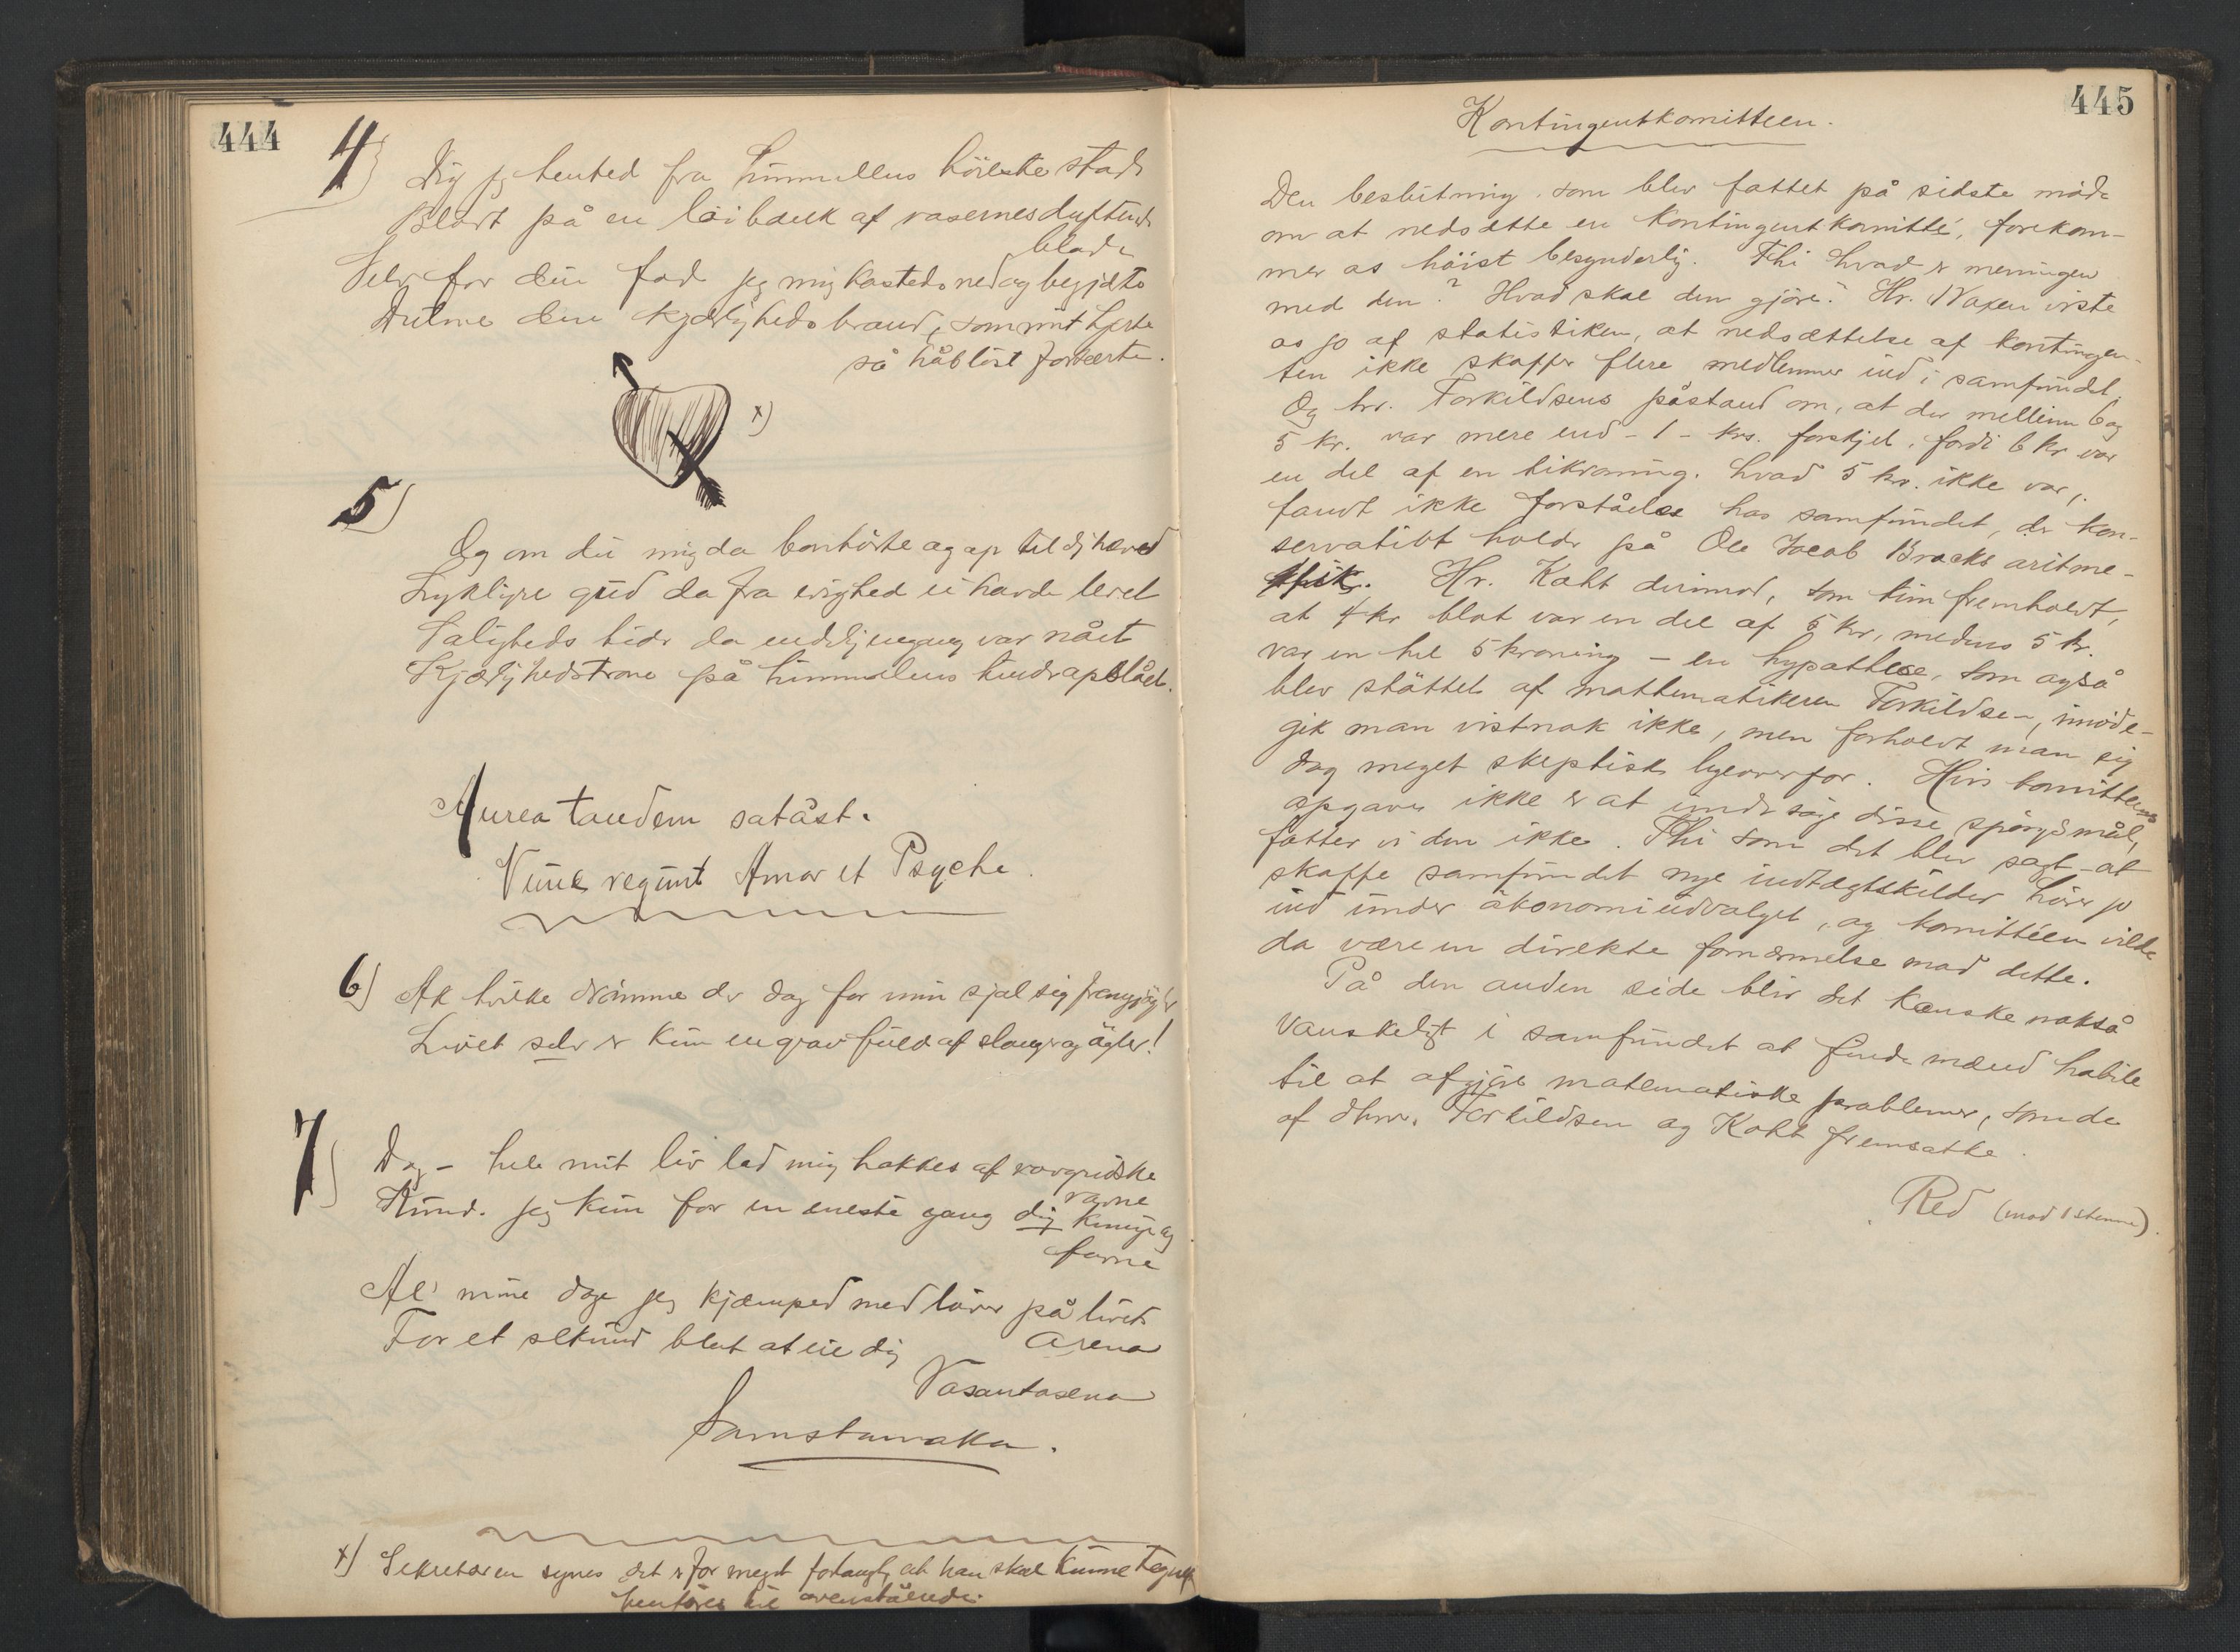 444
4)
Dig jeg hented fra himmellens höieste stade
Blödt på en löibænk af rosernes duftende
blade
Selv for din fod jeg mig kasted ned og begjærte
Dulme den kjærligheds brand, som mit hjerte
så håblöst fortærte.
x)
5)
Og om du mig da bönhörte og op til dig hæved
Lykligre gud da fra evighed ei havde levet
Saligheds tider da endelig engang var nået
Kjærlighedstrone på himmelens tinder opslået.
Aurea tandem satast.
Nunc regunt Amor et Psyche.
6)
Ak hvilke drömme der dog for min sjæl sig fremgjögler
Livet selv er kun en grav fuld af slanger og ögler!
7)
Dog – hele mit liv lad mig hakkes af rovgridske
ravne
Kund. jeg kun for en eneste gang dig knuge og
favne
Al' mine dage jeg kjæmped med löver på livets
arena
For et sekund blot at eie dig
Vasantasena
Samstanaka.
x) Sekretæren synes det er for meget forlangt, at han skal kunne tegne
henföres til ovenstående.
445
Kontingentkomitteen.
Den beslutning som blev fattet på sidste möde
om at nedsætte en kontingentkomitté, forekom-
mer os höist besynderlig. Thi hvad er meningen
med den? Hvad skal den gjöre? Hr. Waxen viste
os jo af statistiken, at nedsættelse af kontingen-
ten ikke skaffer flere medlemmer ind i samfundet.
Og hr. Torkildsens påstand om, at der mellem 6 og
5 kr. var mere end – 1 – krs. forskjel, fordi 6 kr var
en del af en tikroning, hvad 5 kr. ikke var,
fandt ikke forståelse hos samfundet, der kon-
servativt holdr på Ole Jacob Brocks aritme-
thik. Hr. Koht derimod, som kun fremholdt,
at 4 kr blot var en del af 5 kr, medens 5 kr.
var en hel 5 kroning – en hypothese, som også
blev stöttet af mathematikeren Torkildsen, imöde-
gik man vistnok ikke, men forholdt man sig
dog meget skeptisk ligeoverfor. Hvis komitteens
opgave ikke er at undersöge disse spörgsmål,
fatter vi den ikke. Thi som det blev sagt – at
skaffe samfundet nye indtægtskilder hörer jo
ind under ökonomiudvalget, og komittéen vilde
da være en direkte fornærmelse mod dette.
På den anden side blir det kanske nokså
vanskeligt i samfundet at finde mænd habile
til at afgjöre matematiske problemer, som de
af dhrr. Torkildsen og Koht fremsatte.
Red (mod 1 stemme).